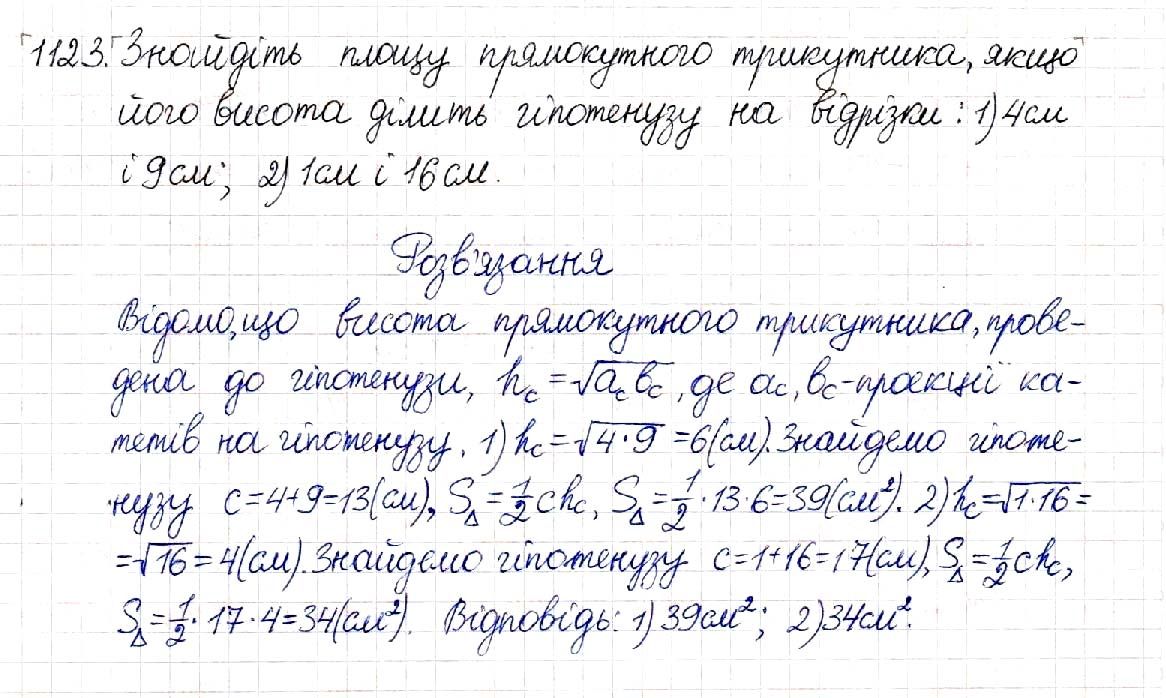 1123. Знайдіть площу прямокутного трикутника, якщо
його висота ділить гіпотенузу на відрізки: 1) 4см
і 9см; 2) 1см і 16см.
Розв'язання
Відомо, що висота прямокутного трикутника, прове-
дена до гіпотенузи, h_c = √(a_c b_c), де a_c, b_c - проекції ка-
тетів на гіпотенузу. 1) h_c = √(4·9) = 6(см). Знайдемо гіпоте-
нузу c = 4+9 = 13(см), S_Δ = 1/2 ch_c, S_Δ = 1/2 · 13 · 6 = 39(см²). 2) h_c = √(1·16) =
= √16 = 4(см). Знайдемо гіпотенузу c = 1+16 = 17(см), S_Δ = 1/2 ch_c,
S_Δ = 1/2 · 17 · 4 = 34(см²). Відповідь: 1) 39см²; 2) 34см².